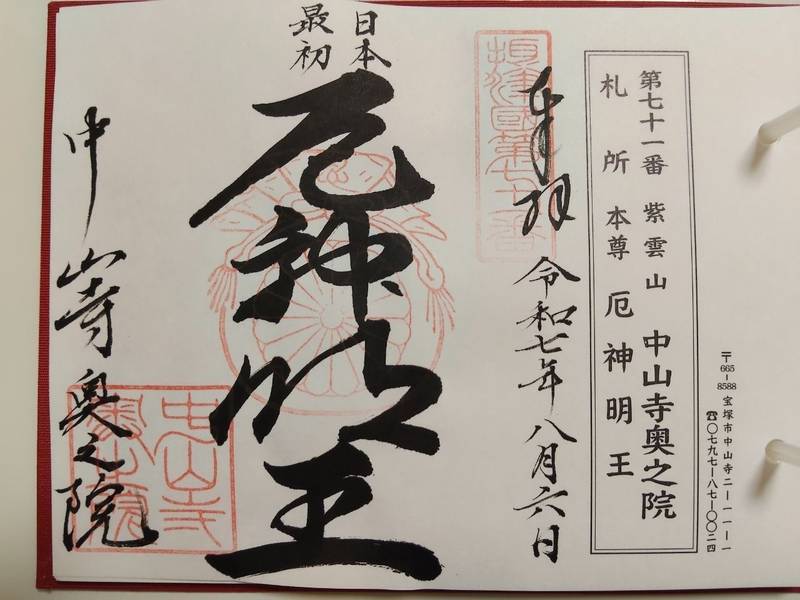 〒665-8588 宝塚市中山寺二ー一一ー一
☎〇七九七ー八七ー〇〇二四
第七十一番 紫雲山 中山寺奥之院
札所本尊 厄神明王
奉拝 令和七年八月六日
日本
最初
厄神明王
中山寺奥之院
中山寺